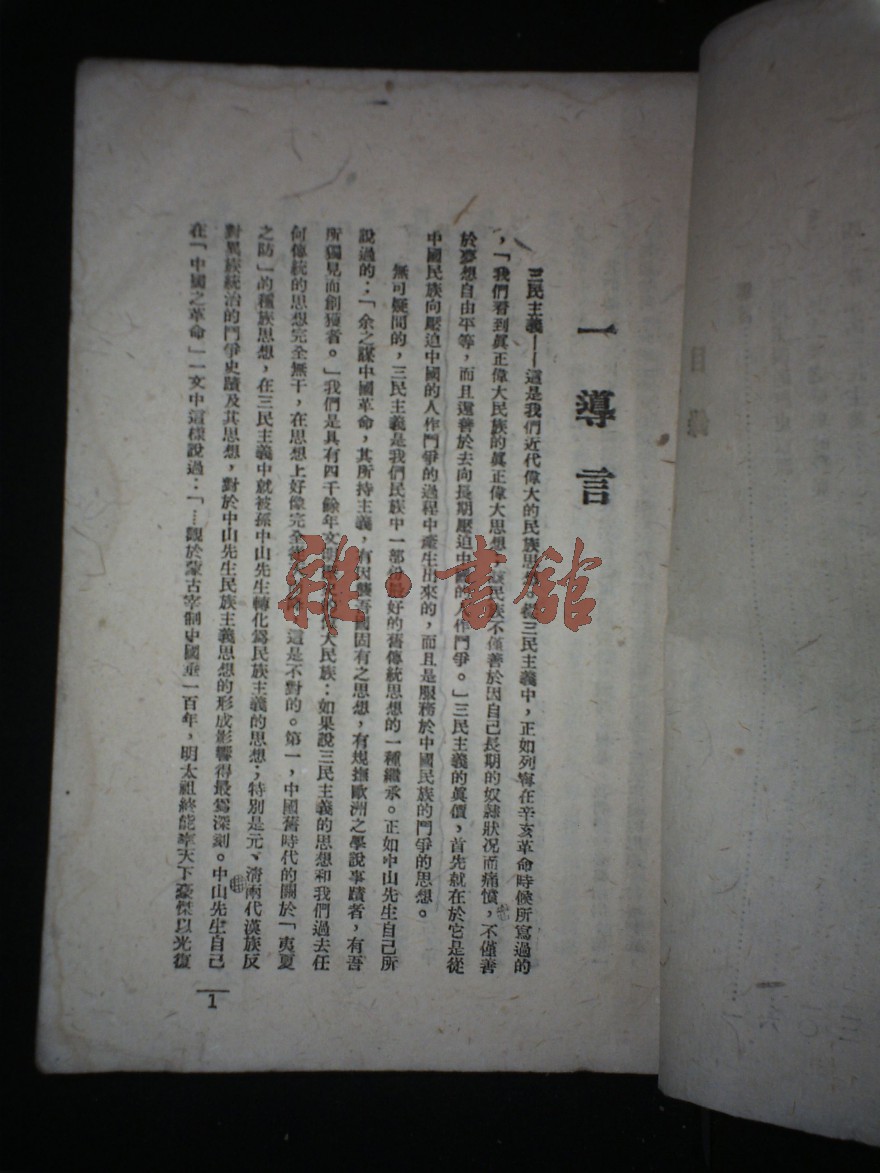 一 導言
三民主義——這是我們近代偉大的民族思想。從三民主義中，正如列寧在辛亥革命時候所寫過的
，「我們看到眞正偉大民族的眞正偉大思想，該民族不僅善於因自己長期的奴隸狀况而痛憤，不僅善
於夢想自由平等，而且還善於去向長期壓迫中國的人作鬥爭。」三民主義的眞價，首先就在於它是從
中國民族向壓迫中國的人作鬥爭的過程中產生出來的，而且是服務於中國民族的鬥爭的思想。
無可疑問的，三民主義是我們民族中一部份最好的舊傳統思想的一種繼承。正如中山先生自己所
說過的：「余之謀中國革命，其所持主義，有因襲吾國固有之思想，有規撫歐洲之學說事蹟者，有吾
所獨見而創獲者。」我們是具有四千餘年文明大民族：如果說三民主義的思想和我們過去任
何傳統的思想完全無干，在思想上好像完全，這是不對的。第一，中國舊時代的關於「夷夏
之防」的種族思想，在三民主義中就被孫中山先生轉化爲民族主義的思想；特別是元、淸兩代漢族反
對異族統治的鬥爭史蹟及其思想，對於中山先生民族主義思想的形成影響得最爲深刻。中山先生自己
在「中國之革命」一文中這樣說過：「…觀於蒙古宰制中國垂一百年，明太祖終能率天下豪傑以光復
1
目錄
雜·書館